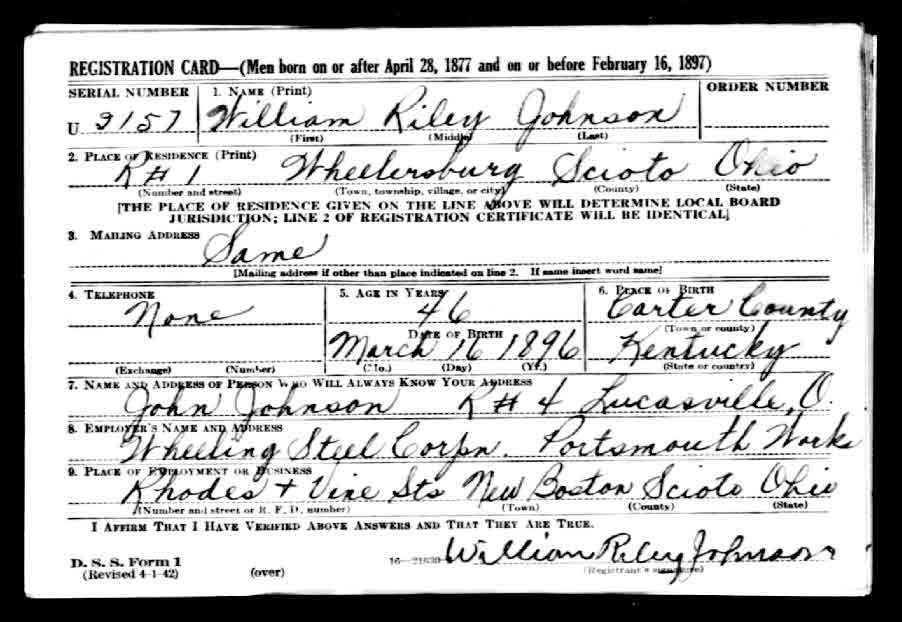 REGISTRATION CARD—(Men born on or after April 28, 1877 and on or before February 16, 1897)
SERIAL NUMBER 1. NAME (Print) ORDER NUMBER
U 3157 William Riley Johnson
(First) (Middle) (Last)
2. PLACE OF RESIDENCE (Print)
R# 1 Wheelersburg Scioto Ohio
(Number and street) (Town, township, village, or city) (County) (State)
[THE PLACE OF RESIDENCE GIVEN ON THE LINE ABOVE WILL DETERMINE LOCAL BOARD
JURISDICTION; LINE 2 OF REGISTRATION CERTIFICATE WILL BE IDENTICAL]
3. MAILING ADDRESS
Same
[Mailing address if other than place indicated on line 2. If same insert word same]
4. TELEPHONE 5. AGE IN YEARS 6. PLACE OF BIRTH
None 46 Carter County
DATE OF BIRTH (Town or county)
March 16 1896 Kentucky
(Exchange) (Number) (Mo.) (Day) (Yr.) (State or country)
7. NAME AND ADDRESS OF PERSON WHO WILL ALWAYS KNOW YOUR ADDRESS
John Johnson R# 4 Lucasville, O.
8. EMPLOYER'S NAME AND ADDRESS
Wheeling Steel Corpn. Portsmouth Works
9. PLACE OF EMPLOYMENT OR BUSINESS
Rhodes + Vine Sts New Boston Scioto Ohio
(Number and street or R. F. D. number) (Town) (County) (State)
I AFFIRM THAT I HAVE VERIFIED ABOVE ANSWERS AND THAT THEY ARE TRUE.
D. S. S. Form 1 16—21630 William Riley Johnson
(Revised 4-1-42) (over) (Registrant's signature)